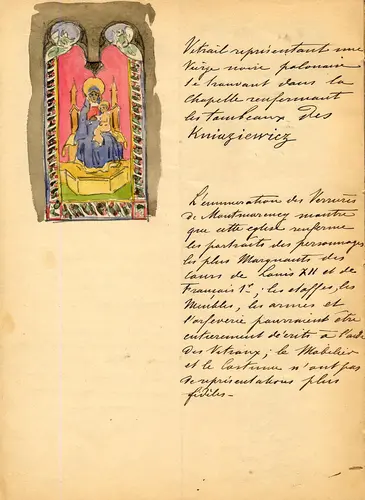 Vitrail représentant une
Vierge noire polonaise
se trouvant dans la
Chapelle renfermant
les tombeaux des
Kniaziewicz
L'énumération des Verrières
de Montmorency montre
que cette église renferme
les portraits des personnages
les plus Marquants des
cours de Louis XII et de
Français 1er; les étoffes, les
Meubles, les armes et
l'orfèverie pourraient être
entierement décrits à l'aide
des Vitraux; le Mobilier
et le Costume n'ont pas
de représentations plus
fidèles.